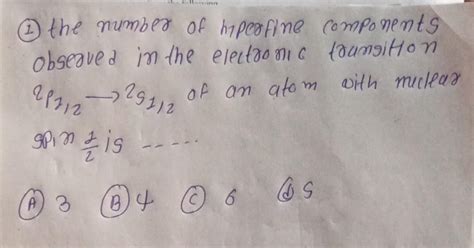 ① the number of hyperfine components
observed in the electronic transition
²P₁/₂ → ²S₁/₂ of an atom with nuclear
spin 1/2 is -----
Ⓐ 3 Ⓑ 4 Ⓒ 6 ⓓ 5